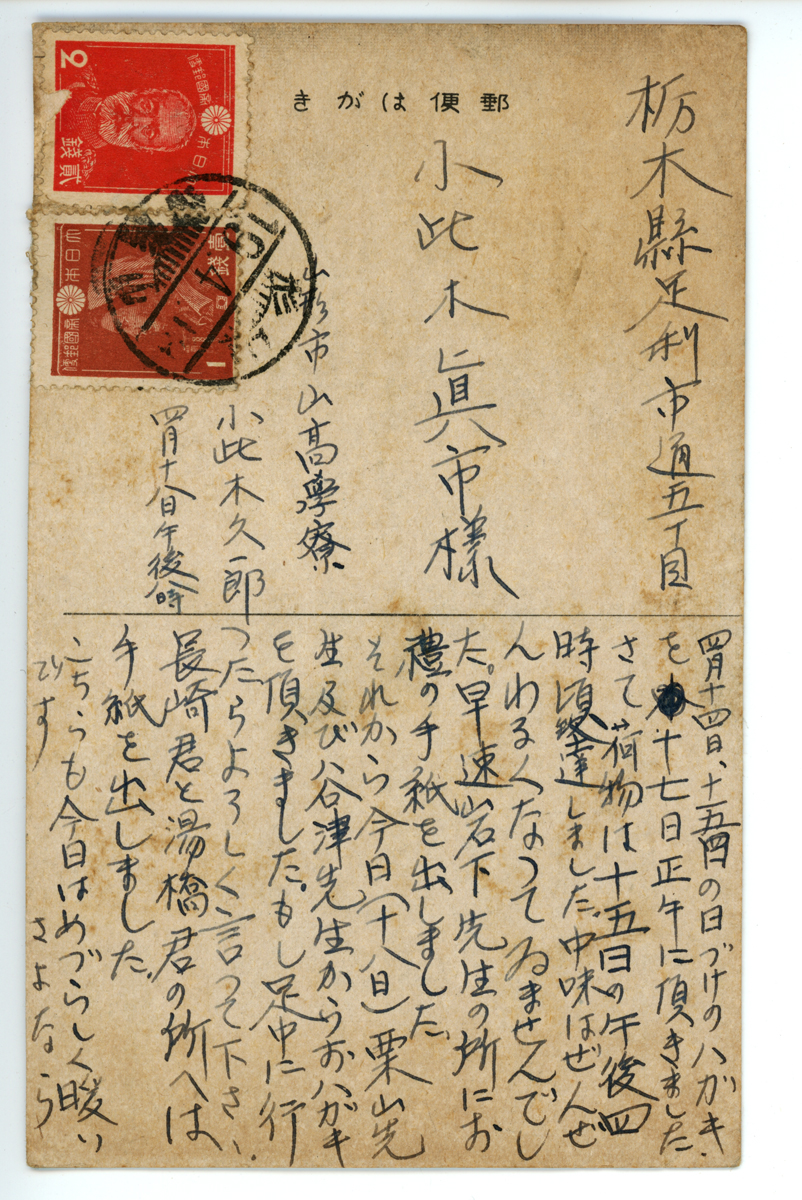 郵便はがき
栃木縣足利市通五丁目
小此木眞市様
山形市山高學寮に
小此木久一郎
四月十八日午後 時
四月十四日、十五日の日づけのハガキ、
を十七日正午に頂きました
さて荷物は十五日の午後四
時頃到達しました、中味はぜんぜ
んわるくなつてゐませんでし
た。早速岩下先生の所にお
禮の手紙を出しました。
それから今日(十八日)栗山先
生及び谷津先生からおハガキ
を頂きました。もし足中に行
つたらよろしく言つて下さい、
長崎君と湯橋君の所へは
手紙を出しました。
こちらも今日はめづらしく暖い
です さよなら
2
大日本
帝國郵便
貳錢
大日本
帝國郵便
壹錢
1